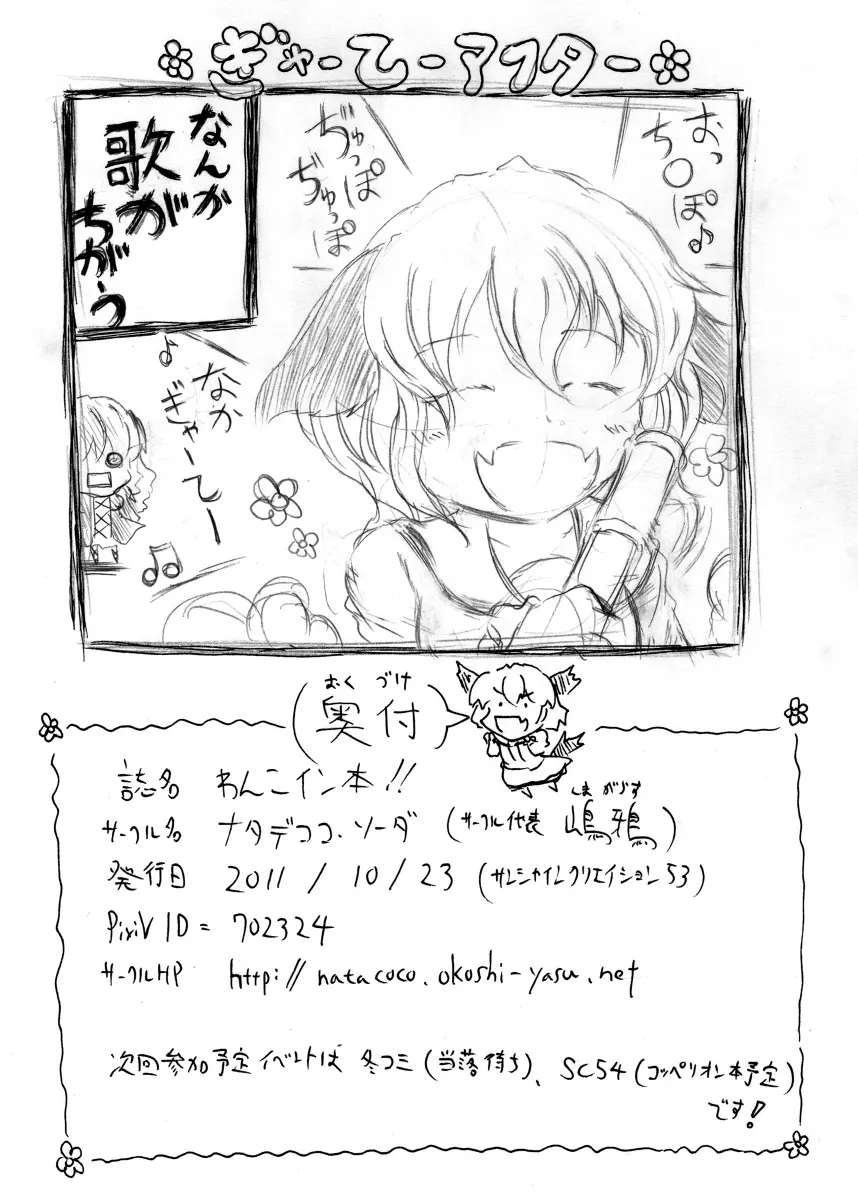 ぎゃーてーアフター
おっ
ち○ぽ♪
ぢゅっぽ
ぢゅっぽ
なんか
歌が
ちがう
なか
ぎゃーてー♪
おくづけ
奥付
誌名 わんこイン本!!
しまがらす
サークル名 ナタデココ・ソーダ (サークル代表 嶋鴉)
発行日 2011/10/23 (サンシャインクリエイション53)
PixiV ID = 702324
サークルHP http://natacoco.okoshi-yasu.net
次回参加予定イベントは 冬コミ(当落待ち)、SC54(コッペリオン本予定)
です!